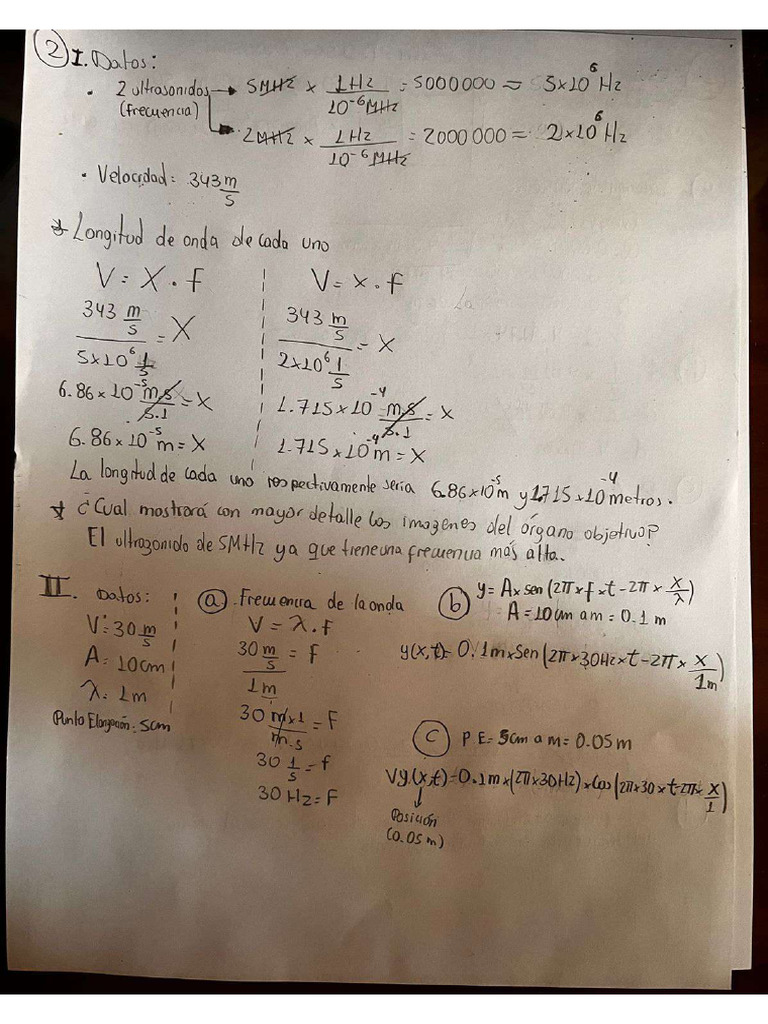 2 I. Datos:
• 2 ultrasonidos → 5MHz × 1Hz / 10⁻⁶MHz = 5000000 = 5×10⁶ Hz
(frecuencia) → 2MHz × 1Hz / 10⁻⁶MHz = 2000000 = 2×10⁶ Hz
• Velocidad: 343 m/s
* Longitud de onda de cada uno
V = X . f
343 m/s / 5×10⁶ 1/s = X
6.86×10⁻⁵ m.s / s.1 = X
6.86×10⁻⁵ m = X
V = x . f
343 m/s / 2×10⁶ 1/s = X
1.715×10⁻⁴ m.s / s.1 = X
1.715×10⁻⁴ m = X
La longitud de cada uno respectivamente seria 6.86×10⁻⁵m y 1.715×10⁻⁴ metros.
* ¿Cual mostrará con mayor detalle las imagenes del órgano objetivo?
El ultrazonido de 5MHz ya que tiene una frecuencia más alta.
II. Datos:
V: 30 m/s
A: 10cm
λ: 1m
Punto Elongación: 5cm
a. Frecuencia de la onda
V = λ.f
30 m/s / 1m = f
30 m×1 / m.s = F
30 1/s = f
30 Hz = F
b y = A × sen (2π × f × t - 2π × x/λ)
A = 10cm a m = 0.1 m
y(x,t) = 0.1m × Sen (2π × 30Hz × t - 2π × x/1m)
c P E = 5cm a m = 0.05 m
Vy.(x,t) = 0.1m × (2π × 30Hz) × Cos (2π × 30 × t - 2π × x/1)
↓
Posición
(0.05 m)